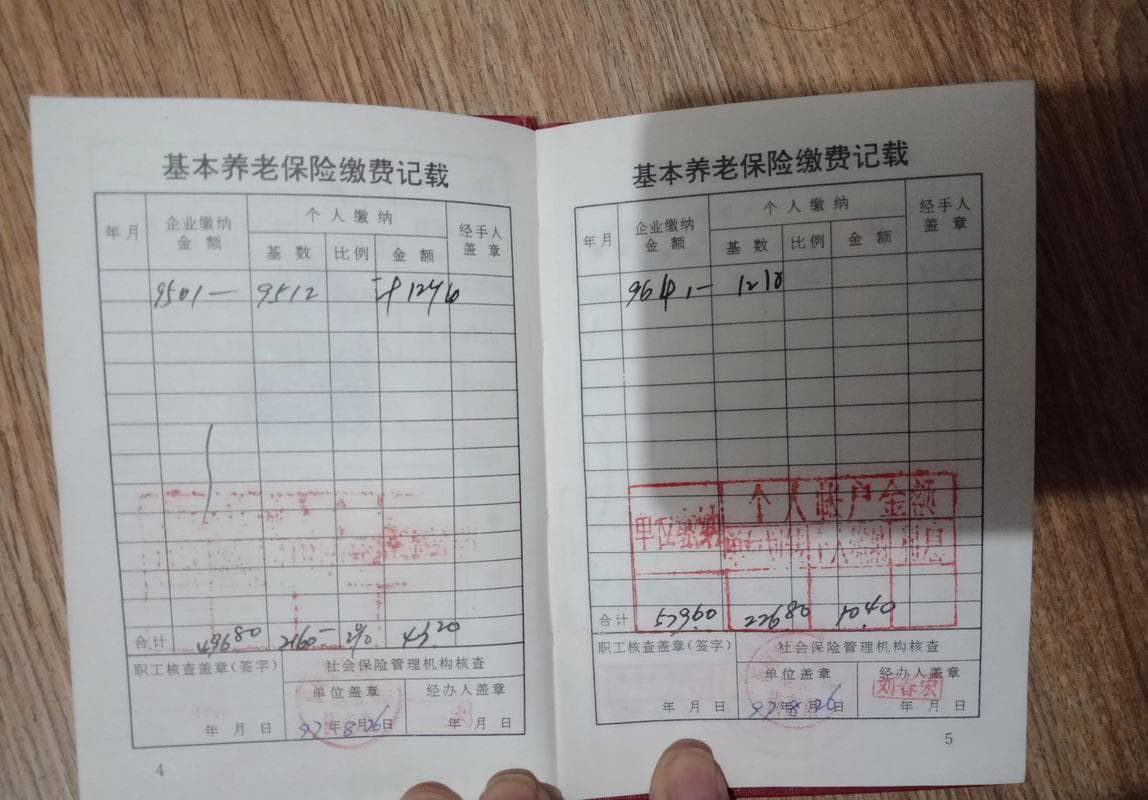 基本养老保险缴费记载
年月 企业缴纳金额 个人缴纳 经手人盖章
基数 比例 金额
9501— 9512 计12个
合计 496⁸⁰ 2160— 2% 43.²⁰
职工核查盖章(签字) 社会保险管理机构核查
单位盖章 经办人盖章
年 月 日 97年8月26日 年 月 日
4
基本养老保险缴费记载
年月 企业缴纳金额 个人缴纳 经手人盖章
基数 比例 金额
1210
个人账户金额
单位缴纳
合计 226⁸⁰
职工核查盖章(签字) 社会保险管理机构核查
单位盖章 经办人盖章
刘春宏
年 月 日 97年8月26日 年 月 日
5